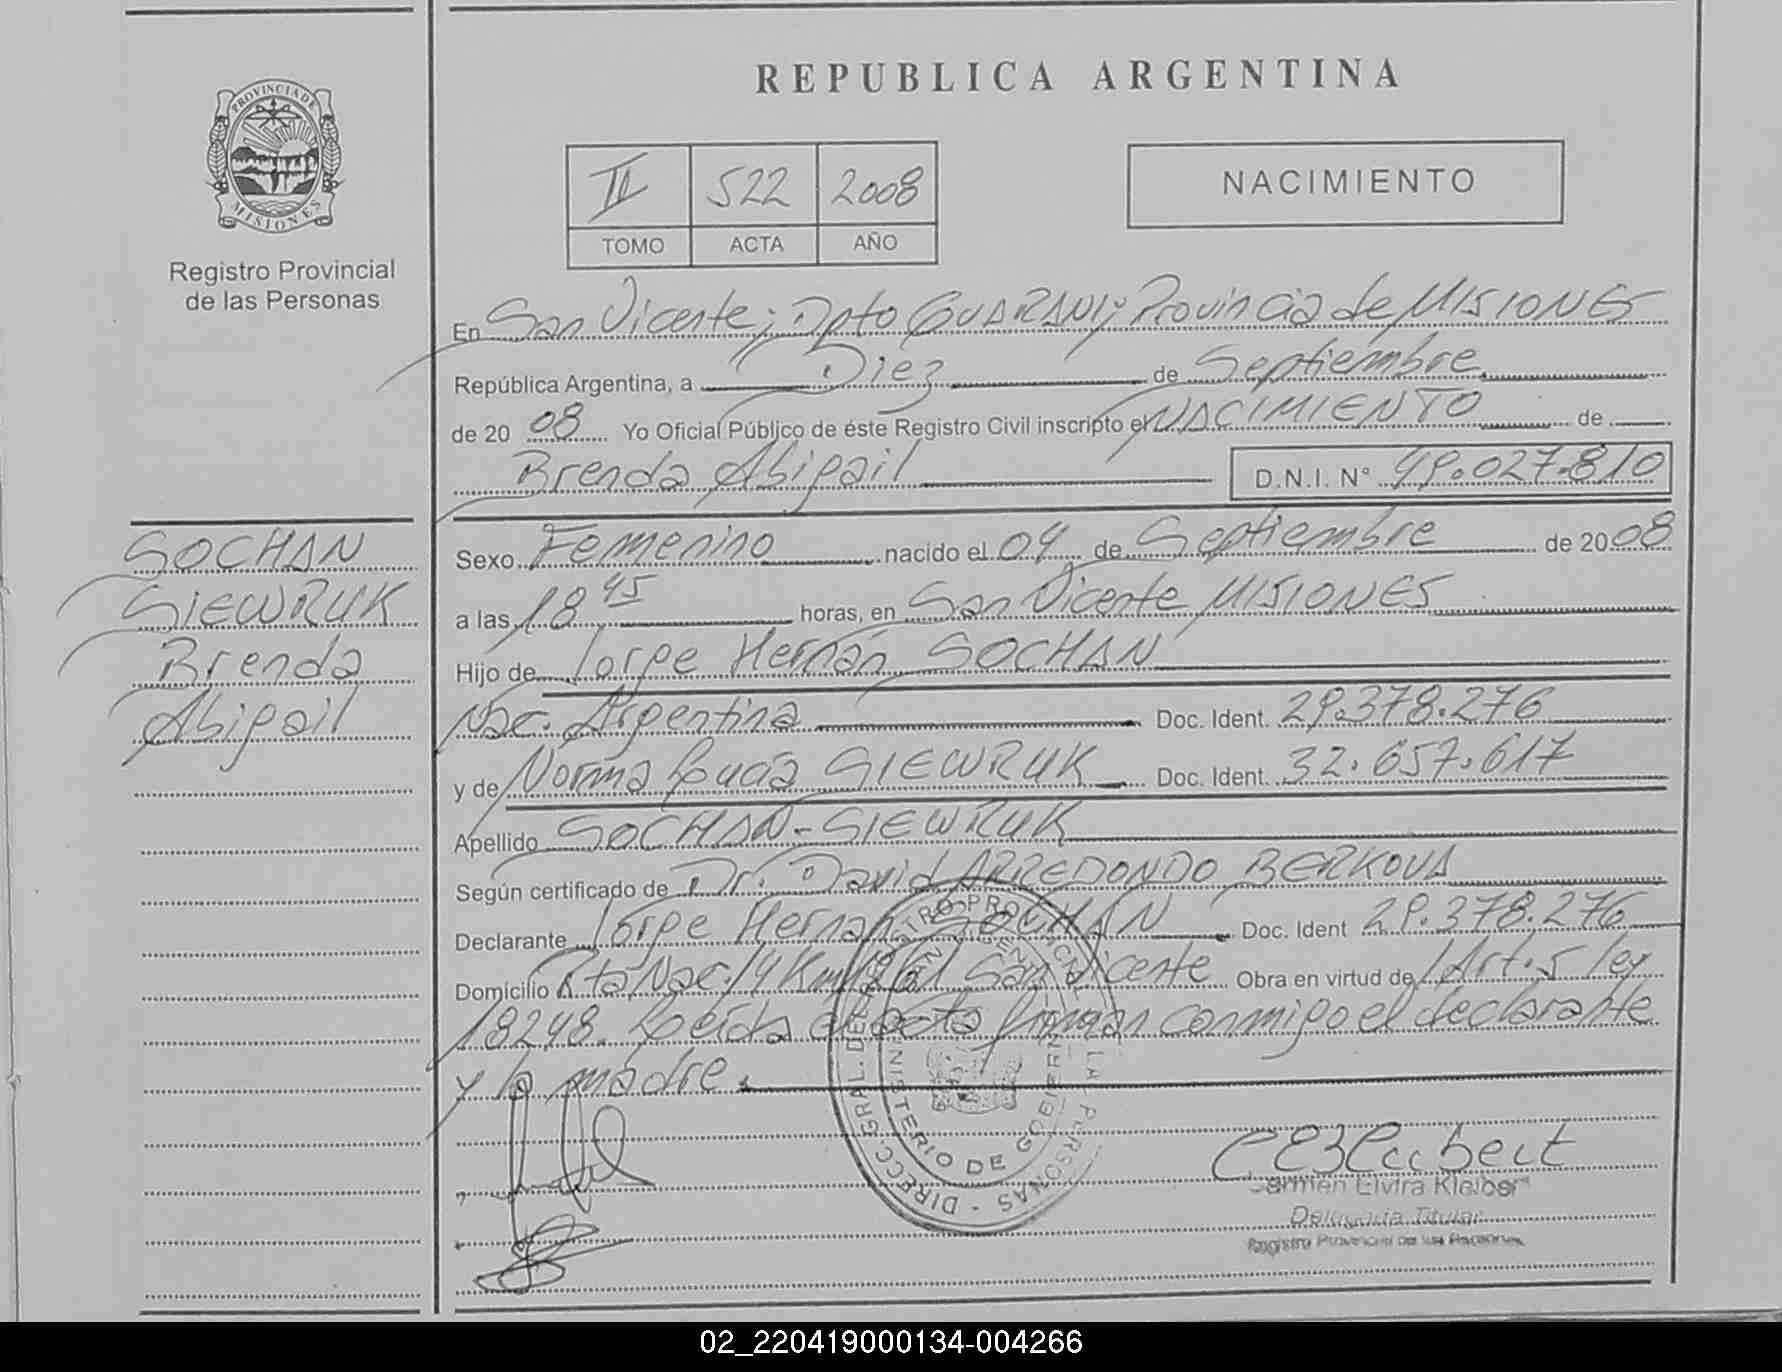 REPUBLICA ARGENTINA
PROVINCIA DE
MISIONES
Registro Provincial
de las Personas
II 522 2008
TOMO ACTA AÑO
NACIMIENTO
En San Vicente; Dpto GUARANI; Provincia de MISIONES
República Argentina, a Diez de Septiembre
de 20 08 Yo Oficial Público de éste Registro Civil inscripto el NACIMIENTO de
Brenda Abigail D.N.I. N° 49.027.810
SOCHAN
SIEWRUK
Brenda
Abigail
Sexo Femenino nacido el 04 de Septiembre de 20 08
a las 18 45 horas, en San Vicente MISIONES
Hijo de Jorge Hernán SOCHAN
Nac. Argentina Doc. Ident. 29.378.276
y de Norma Lucia SIEWRUK Doc. Ident. 32.657.617
Apellido SOCHAN-SIEWRUK
Según certificado de Dr. David ARREDONDO BERKOVA
Declarante Jorge Hernan SOCHAN Doc. Ident 29.378.276
Domicilio Rta Nac. 14 Km San Vicente Obra en virtud de Art. 5 ley
18248. Leida el acta firman conmigo el declarante
y la madre.
DIRECC. GRAL. DEL REGISTRO PROVINCIAL DE LA PERSONAS
MINISTERIO DE GOBIERNO
Carmen Elvira Kleiber
Delegada Titular
Registro Provincial de las Personas
02_220419000134-004266